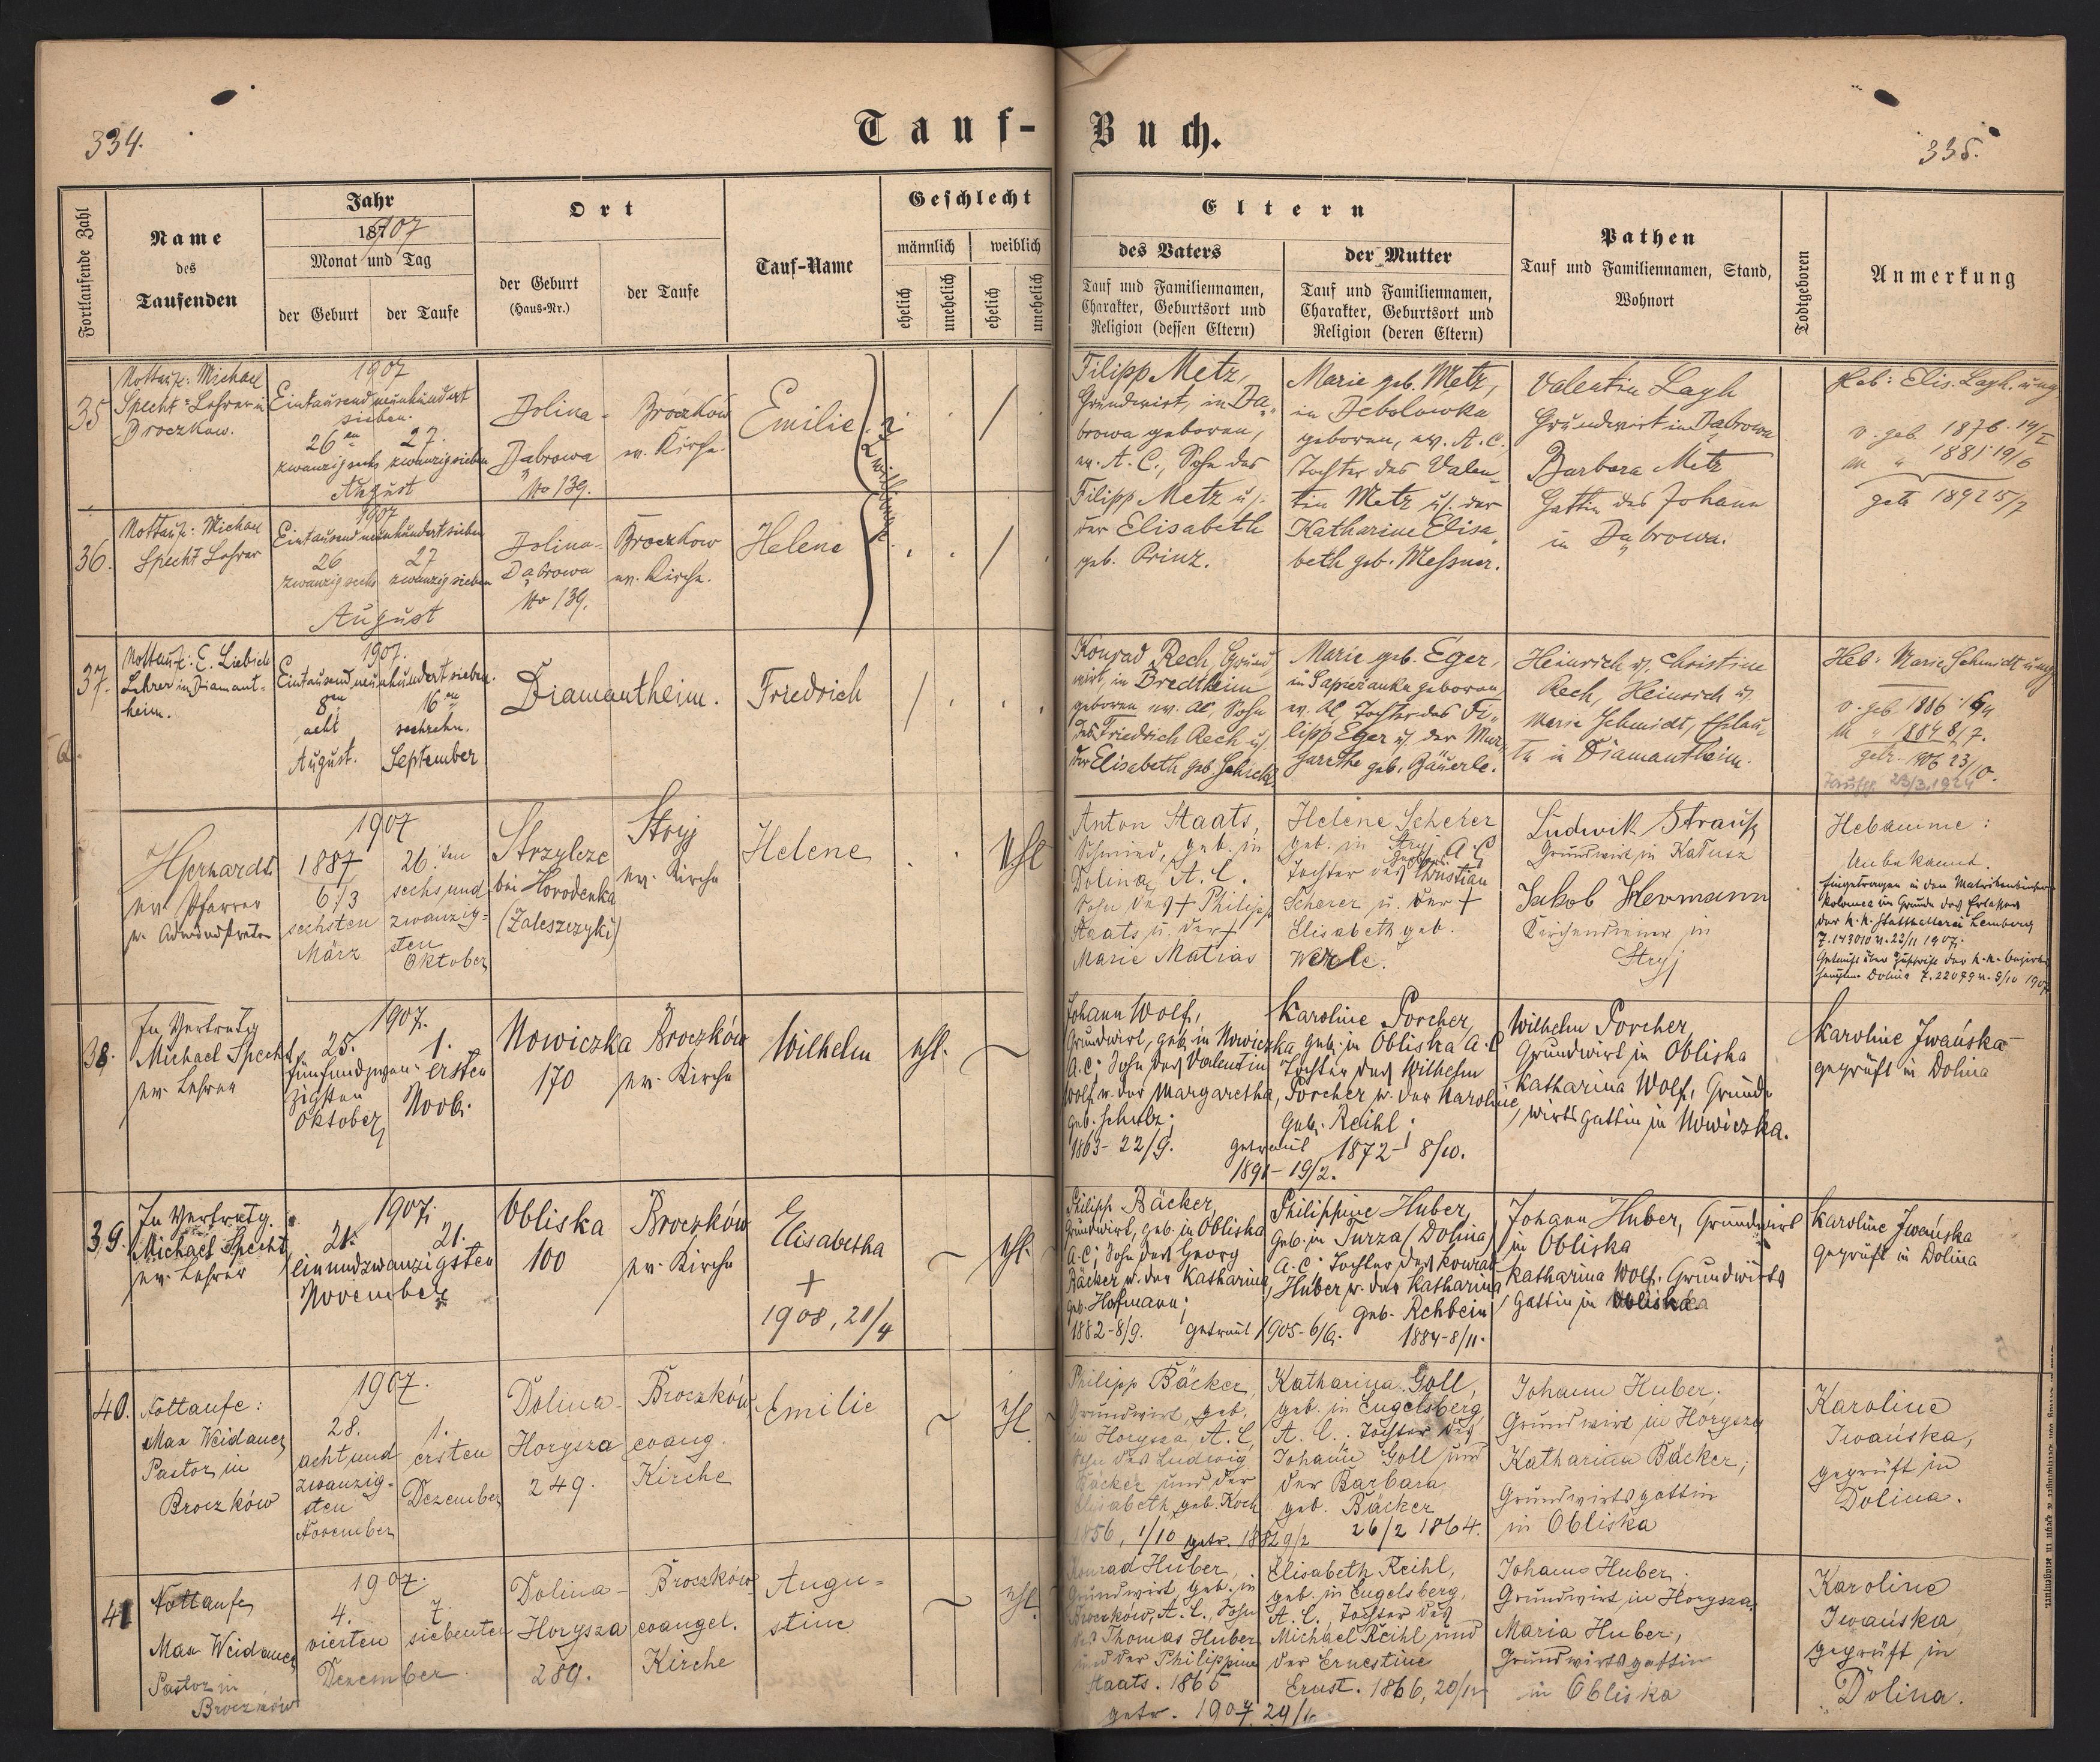 334.
Tauf-Buch.
335.
Fortlaufende Zahl
Name
des
Taufenden
Jahr
187
1907
Monat und Tag
der Geburt
der Taufe
Ort
der Geburt
(Haus-Nr.)
der Taufe
Tauf-Name
Geschlecht
männlich
weiblich
ehelich
unehelich
ehelich
unehelich
Eltern
des Vaters
Tauf und Familiennamen,
Charakter, Geburtsort und
Religion (dessen Eltern)
der Mutter
Tauf und Familiennamen,
Charakter, Geburtsort und
Religion (deren Eltern)
Pathen
Tauf und Familiennamen, Stand,
Wohnort
Todtgeboren
Anmerkung
35
Nottaufe: Michael
Specht Lehrer in
Broczkow.
1907
Eintausend neunhundert
sieben.
26en
27.
zwanzigsechs
zwanzigsieben
August
Dolina-
Dąbrowa
No 139.
Broczków
ev. Kirche.
Emilie
Zwillinge
/
Filipp Metz,
Grundwirt, in Dą-
browa geboren,
ev. A. C., Sohn des
Filipp Metz u.
der Elisabeth
geb. Prinz.
Marie geb. Metz,
in Debolowka
geboren, ev. A. C.
Tochter des Valen-
tin Metz u. der
Katharine Elisa-
beth geb. Messner.
Valentin Lagh
Grundwirt in Dąbrowa
Barbara Metz
Gattin des Johann
in Dąbrowa.
Heb: Elis. Lagh. ung.
v. geb. 1876 19/I
m " 1881 19/6
getr 1892 5/7
36.
Nottaufe: Michael
Specht Lehrer
1907
Eintausend neunhundert sieben
26
27
zwanzigsechs
zwanzigsieben
August
Dolina-
Dąbrowa
No 139.
Broczkow
ev. Kirche.
Helene
/
37.
Nottaufe: E. Liebich
Lehrer in Diamant-
heim.
1907.
Eintausend neunhundert sieben.
8en
16en
acht
sechzehn.
August.
September
Diamantheim.
Friedrich
/
Konrad Rech, Grund-
wirt, in Bredtheim
geboren ev. AC, Sohn
des Friedrich Rech u.
der Elisabeth geb. Schick
Marie geb. Eger,
in Sapieżanka geboren,
ev. AC, Tochter des Fi-
lipp Eger u. der Mar-
garethe geb. Bäuerle.
Heinrich u. Christine
Rech, Heinrich u.
Marie Schmidt, Ehleu-
te in Diamantheim.
Heb: Marie Schmidt ung
m " 1884 8/7.
getr. 1906 23/10.
23/3.1924
HGerhardt
ev. Pfarrer
1907
1887
6/3
sechsten
März
26.ten
sechsund
zwanzig-
sten
Oktober
Strzylcze
bei Horodenka
(Zaleszczyki)
Stryj
ev. Kirche
Helene
ehl
Anton Staats,
Schmied, geb. in
Dolina, A. C.
Sohn des + Philipp
Staats u. der +
Marie Matias
Helene Scherer
geb. in Stryj A. C
Tochter des Christian
Scherer u. der +
Elisabeth geb.
Werle.
Ludwik Strauß
Grundwirt in Kałusz
Jakob Hermann
Kirchendiener in
Stryj
Hebamme:
Unbekannt.
Eingetragen in den Matrikenbücher
Kolomea im Grunde des Erlasses
der k. k. Statthalterei Lemberg
Z. 143010 v. 22/11 1907.
Dolina Z. 22079 v. 9/10 1907
38.
In Vertretg
Michael Specht,
ev. Lehrer
1907.
25.
1.
fünfundzwan-
zigsten
Oktober
ersten
Novb.
Nowiczka
170
Broczków
ev. Kirche
Wilhelm
ehl.
Johann Wolf,
Grundwirt, geb. in Nowiczka
A. C; Sohn des Valentin
Wolf u. der Margaretha,
geb. Schulz;
1863 - 22/9.
getraut
1891 - 19/2.
Karoline Porcher,
geb. in Obliska A. C
Tochter des Wilhelm
Porcher u. der Karoline,
geb. Reihl;
1872 - 8/10.
Wilhelm Porcher,
Grundwirt in Obliska
Katharina Wolf, Grund-
wirtsgattin in Nowiczka.
Karoline Iwańska
geprüft in Dolina
39.
In Vertretg.
Michael Specht,
ev. Lehrer
1907.
21.
21.
einundzwanzigsten
November
Obliska
100
Broczków
ev. Kirche
Elisabetha
+
1908, 21/4
ehl.
Philipp Bäcker,
Grundwirt, geb. in Obliska
A. C; Sohn des Georg
Bäcker u. der Katharina,
geb. Hofmann;
1882 - 8/9.
getraut 1905 - 6/6.
Philippine Huber,
geb. in Turza (Dolina)
A. C; Tochter des Konrad
Huber u. der Katharina
geb. Rehbein
1884 - 8/11.
Johann Huber, Grundwirt
in Obliska
Katharina Wolf, Grundwirts
Gattin in Obliska.
Karoline Iwańska
geprüft in Dolina
40.
Nottaufe:
Max Weidauer
Pastor in
Broczków
1907.
28.
1.
achtund
zwanzig-
sten
November
ersten
Dezember
Dolina-
Horysza
249.
Broczków
evang.
Kirche
Emilie
ehl.
Philipp Bäcker,
Grundwirt, geb.
in Horysza, A. C,
Sohn des Ludwig
Bäcker und der
Elisabeth geb. Koch
1856, 1/10 getr. 1882 9/2
Katharina Goll,
geb. in Engelsberg
A. C. Tochter des
Johann Goll und
der Barbara
geb. Bäcker
26/2 1864.
Johann Huber,
Grundwirt in Horysza
Katharina Bäcker,
Grundwirtsgattin
in Obliska
Karoline
Iwańska,
geprüft in
Dolina.
41
Nottaufe
Max Weidauer
Pastor in
Broczków
1907.
4.
7.
vierten
siebenten
Dezember
Dolina-
Horysza
289.
Broczków
evangel.
Kirche
Augu-
stine
ehl.
Konrad Huber,
Grundwirt, geb. in
Broczków, A. C., Sohn
des Thomas Huber
und der Philippine
Staats. 1865
getr. 1907 29/10
Elisabeth Reihl,
geb. in Engelsberg,
A. C. Tochter des
Michael Reihl und
der Ernestine
Ernst. 1866, 20/11
Johann Huber,
Grundwirt in Horysza,
Maria Huber,
Grundwirtsgattin
in Obliska
Karoline
Iwańska
geprüft in
Dolina.